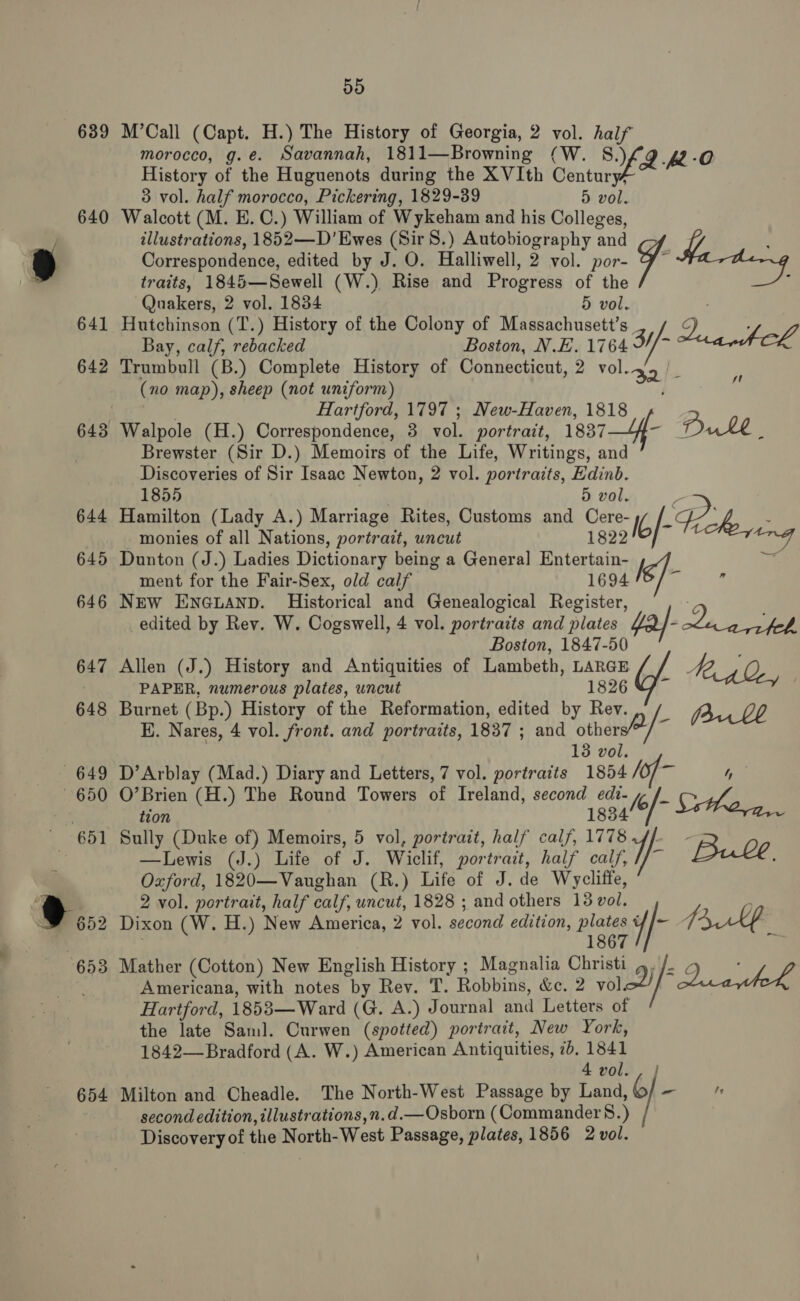 55
639 M'Call (Capt. H.) The History of Georgia, 2 vol. half
morocco, g. e. Savannah, 1811—Browning (W. S.) £2.12.0
History of the Huguenots during the XVIth Century
3 vol. half morocco, Pickering, 1829-39 5 vol.
640 Walcott (M. E. C.) William of Wykeham and his Colleges,
illustrations, 1852—D'Ewes (Sir S.) Autobiography and
Correspondence, edited by J. O. Halliwell, 2 vol. por- 9/- Harding
traits, 1845—Sewell (W.) Rise and Progress of the
Quakers, 2 vol. 1834 5 vol.
641 Hutchinson (T.) History of the Colony of Massachusett's
Bay, calf, rebacked Boston, N.E. 1764 31/- Quaritch
642 Trumbull (B.) Complete History of Connecticut, 2 vol. 32/- "
(no map), sheep (not uniform)
Hartford, 1797 ; New-Haven, 1818
643 Walpole (H.) Correspondence, 3 vol. portrait, 1837— 4/- Bull.
Brewster (Sir D.) Memoirs of the Life, Writings, and
Discoveries of Sir Isaac Newton, 2 vol. portraits, Edinb.
1855 5 vol.
644 Hamilton (Lady A.) Marriage Rites, Customs and Cere-
monies of all Nations, portrait, uncut 1822 16/- Pickering
645 Dunton (J.) Ladies Dictionary being a General Entertain-
ment for the Fair-Sex, old calf 1694 16/- "
646 NEW ENGLAND. Historical and Genealogical Register,
edited by Rev. W. Cogswell, 4 vol. portraits and plates 42/- Quaritch
Boston, 1847-50
647 Allen (J.) History and Antiquities of Lambeth, LARGE
PAPER, numerous plates, uncut 1826
648 Burnet (Bp.) History of the Reformation, edited by Rev.
E. Nares, 4 vol. front. and portraits, 1837 ; and others 2/- Bull
13 vol.
649 D'Arblay (Mad.) Diary and Letters, 7 vol. portraits 1854 10/- "
650 O'Brien (H.) The Round Towers of Ireland, second edi-
tion 1834 16/- Sotheran
651 Sully (Duke of) Memoirs, 5 vol, portrait, half calf, 1778
—Lewis (J.) Life of J. Wiclif, portrait, half calf, Bull.
Oxford, 1820—Vaughan (R.) Life of J. de Wycliffe,
2 vol. portrait, half calf, uncut, 1828 ; and others 13 vol.
652 Dixon (W. H.) New America, 2 vol. second edition, plates Bull
1867
653 Mather (Cotton) New English History ; Magnalia Christi
Americana, with notes by Rev. T. Robbins, &c. 2 vol. 21/- Quaritch
Hartford, 1853—Ward (G. A.) Journal and Letters of
the late Saml. Curwen (spotted) portrait, New York,
1842—Bradford (A. W.) American Antiquities, ib. 1841
4 vol.
654 Milton and Cheadle. The North-West Passage by Land, 6/- "
second edition, illustrations, n.d.—Osborn (Commander S.)
Discovery of the North-West Passage, plates, 1856 2 vol.